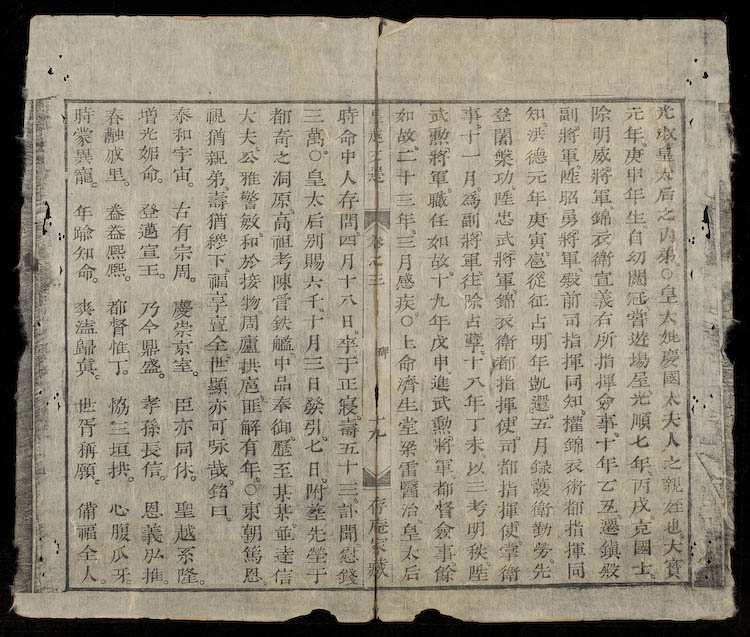 光淑皇太后之丙弟。○皇太妣慶國太夫人之親姪也。大寶
元年。庚申年生。自幼閥冠。嘗遊場屋。光順七年。丙戌。克國士。
除明威將軍錦衣衛宣義右所指揮僉事。十年乙丑。遷鎮殿
副將軍。陞昭勇將軍。殿前司指揮同知。權錦衣衛都指揮同
知。洪德元年庚寅。扈從征占。明年凱還。五月録護衛勤勞。先
登闍槃功。陞忠武將軍錦衣衛都指揮使。司都指揮使。掌衛
事。十一月。為副將軍。往除占孽。十八年丁未。以三考明秩。陞
武勲將軍。職任如故。十九年戊申。進武勲將軍。都督僉事。餘
如故。二十三年。三月感疾。○上命濟生堂梁雷醫治。皇太后
皇越文選 卷之三 碑 十九 存庵家藏
時命中人存問。四月十八日。卒于正寢。壽五十三。訃聞。慰錢
三萬。○皇太后別賜六千。十月三日發引。七日。附葬先塋于
都奇之洞原。高祖考陳霄鉄艦中品奉御。歷至某某。並逹信
大夫。公雅警敏。和於接物。周廬拱扈。匪解有年。○東朝篤恩。
視猶親弟。壽猶穆下。福享亶全。世顯亦可咏哉。銘曰。
泰和宇宙。 古有宗周。 慶崇京室。 臣亦同休。 聖越系隆。
增光妫命。 登邁宣王。 乃今鼎盛。 孝孫長信。 恩義弘推。
春融戚里。 登登熙熙。 都督惟丁。 恊三垣拱。 心腹爪牙。
時蒙異寵。 年踰知命。 爽溘歸真。 世胥稱願。 備福全人。